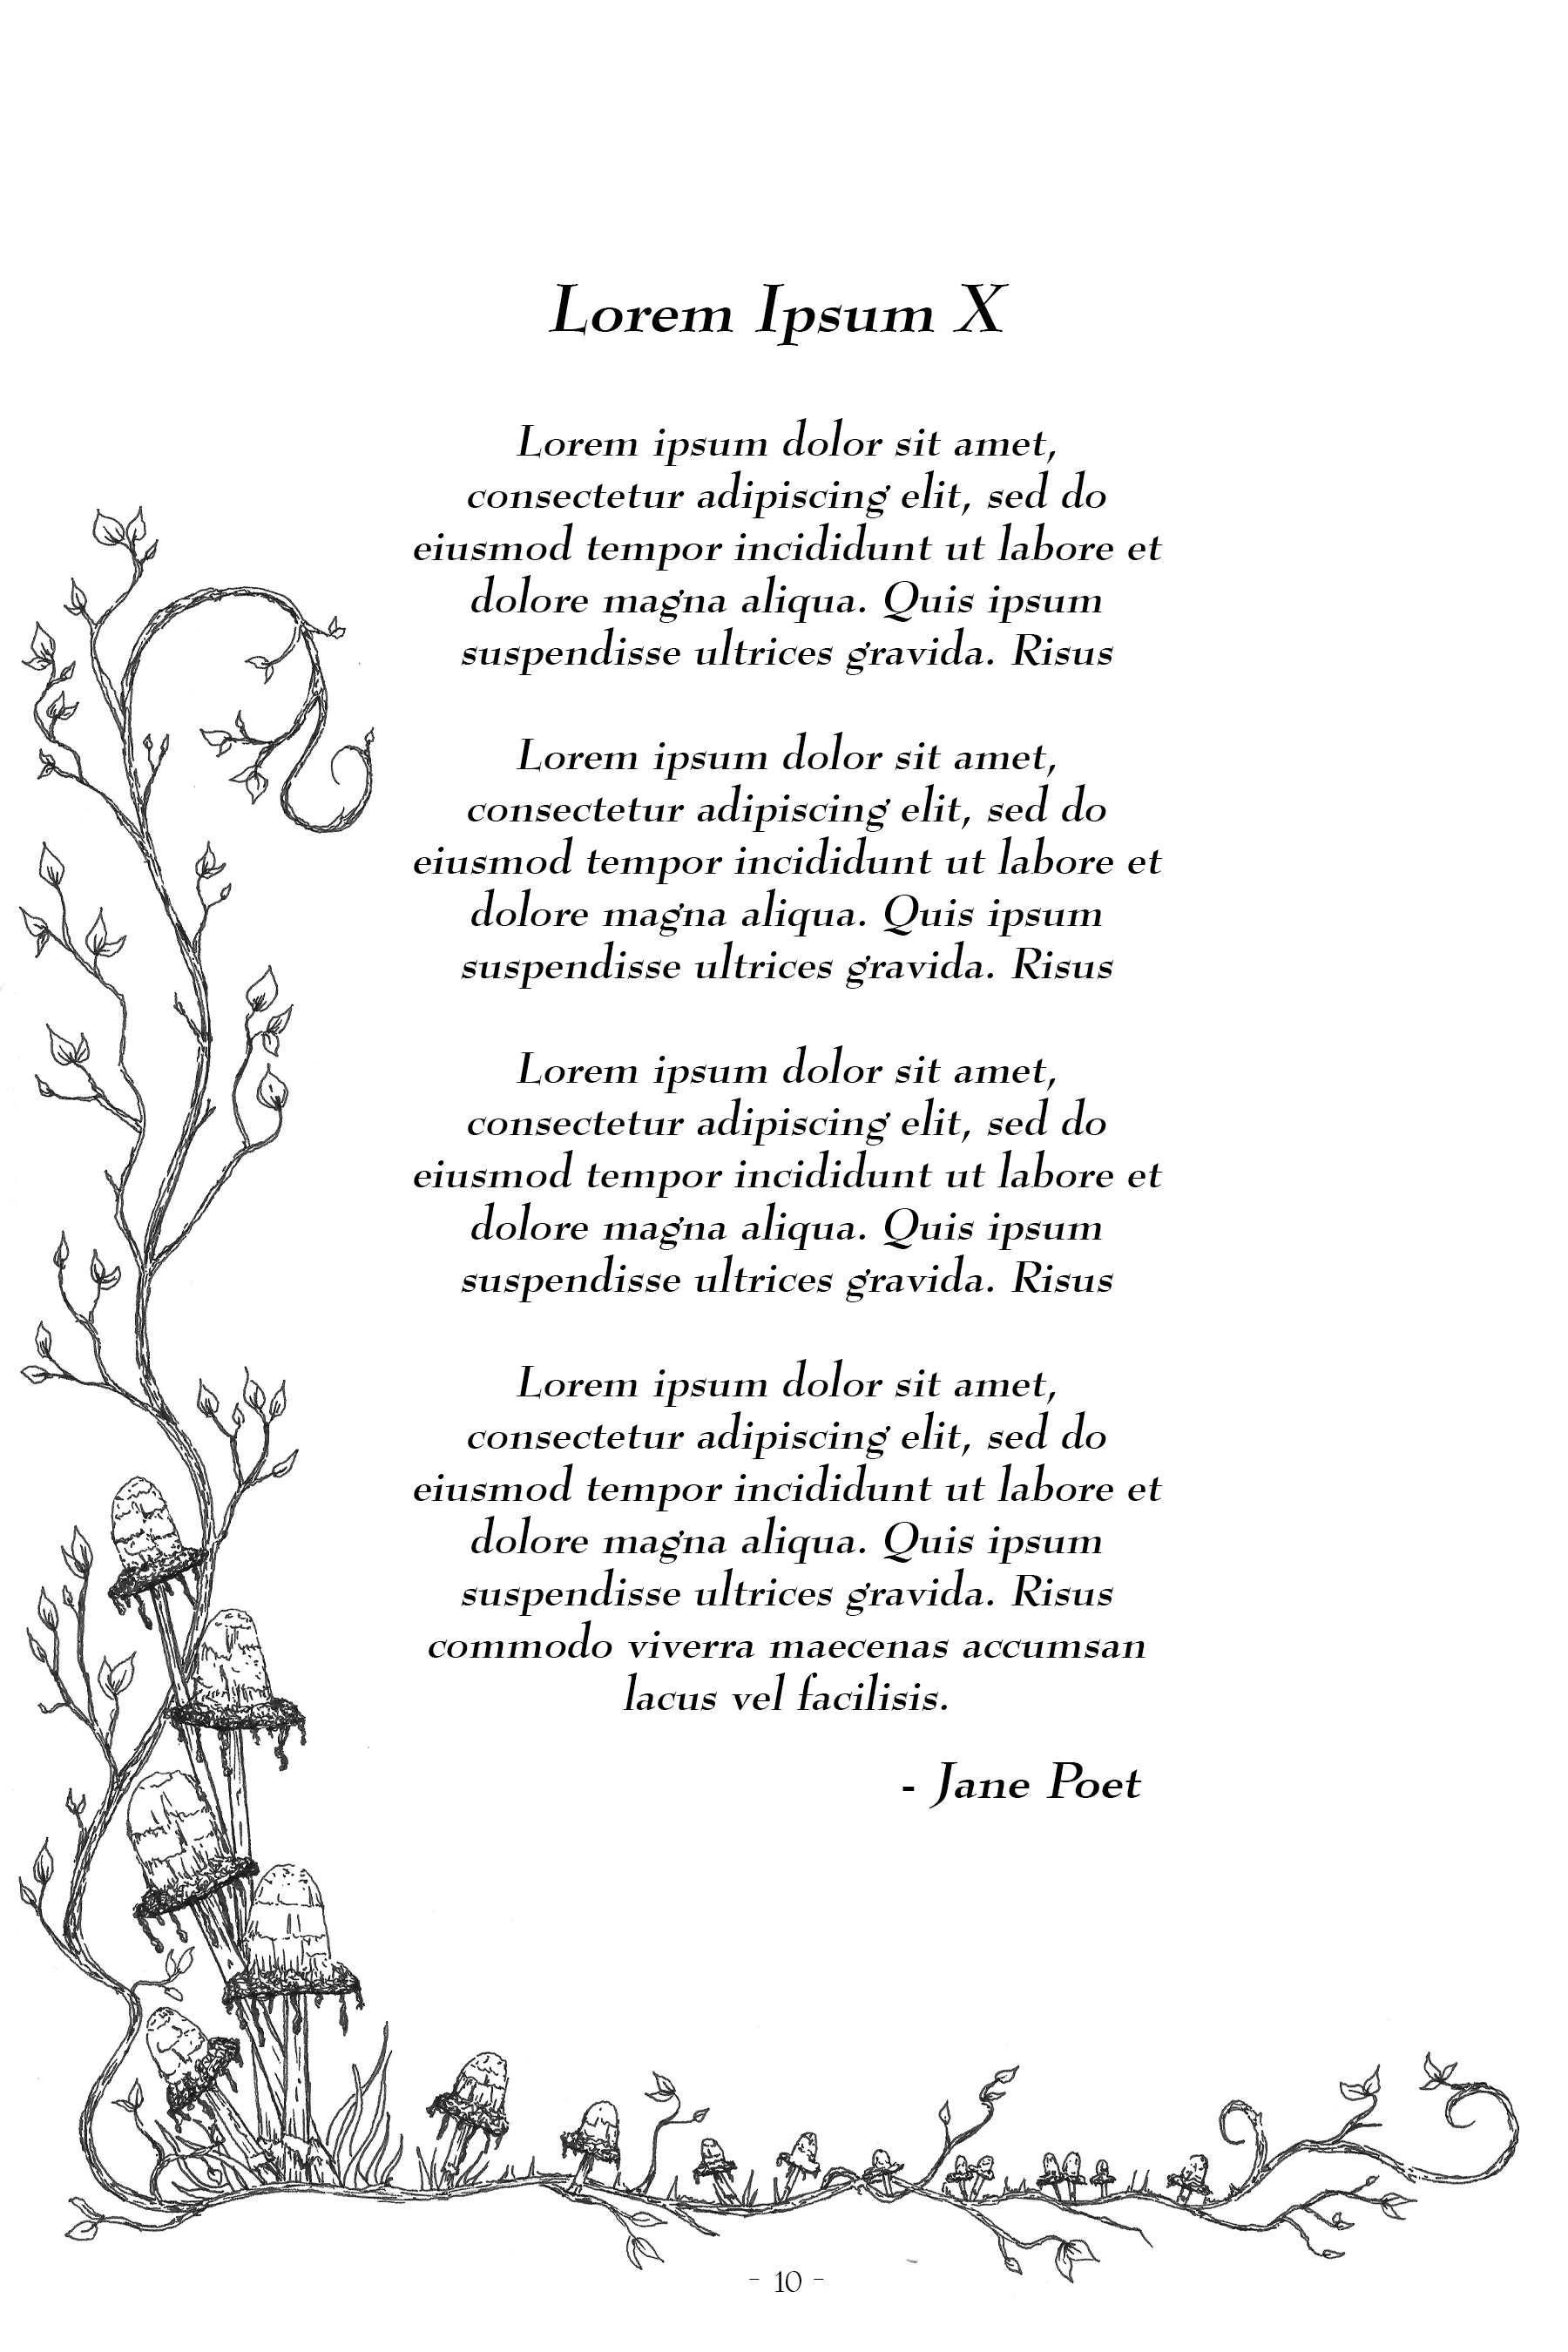 Lorem Ipsum X
Lorem ipsum dolor sit amet,
consectetur adipiscing elit, sed do
eiusmod tempor incididunt ut labore et
dolore magna aliqua. Quis ipsum
suspendisse ultrices gravida. Risus
Lorem ipsum dolor sit amet,
consectetur adipiscing elit, sed do
eiusmod tempor incididunt ut labore et
dolore magna aliqua. Quis ipsum
suspendisse ultrices gravida. Risus
Lorem ipsum dolor sit amet,
consectetur adipiscing elit, sed do
eiusmod tempor incididunt ut labore et
dolore magna aliqua. Quis ipsum
suspendisse ultrices gravida. Risus
Lorem ipsum dolor sit amet,
consectetur adipiscing elit, sed do
eiusmod tempor incididunt ut labore et
dolore magna aliqua. Quis ipsum
suspendisse ultrices gravida. Risus
commodo viverra maecenas accumsan
lacus vel facilisis.
- Jane Poet
- 10 -